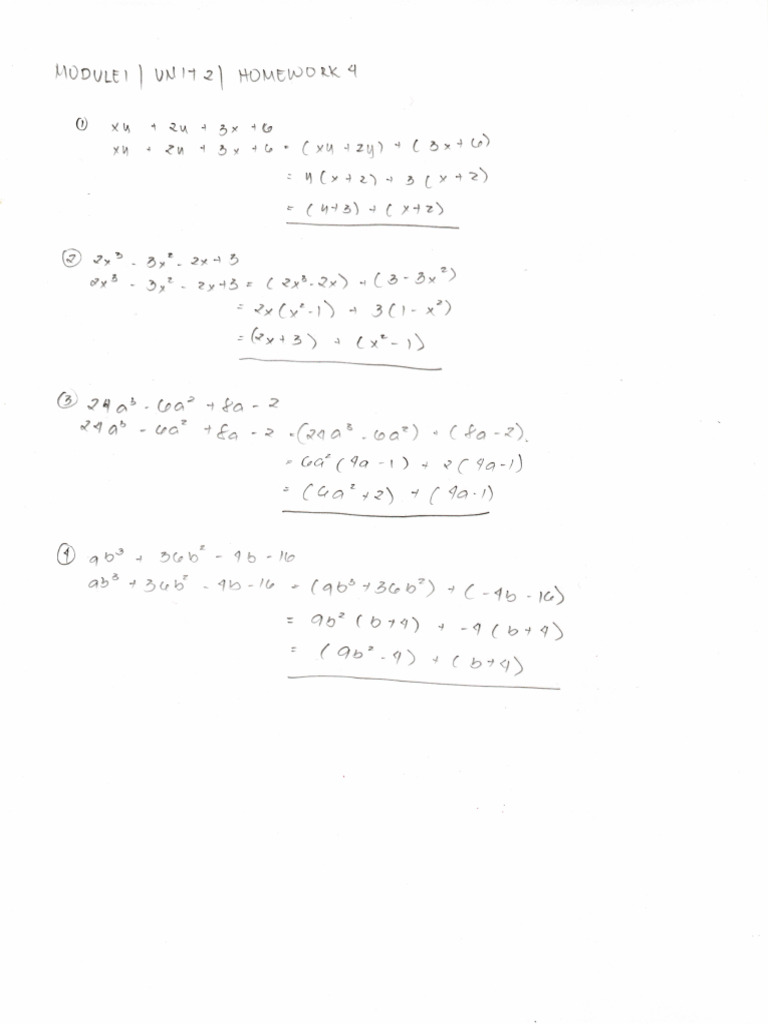 MODULE 1 | UNIT 2 | HOMEWORK 4
① xy + 2y + 3x + 6
xy + 2y + 3x + 6 = (xy + 2y) + (3x + 6)
= y(x + 2) + 3(x + 2)
= (y+3) + (x+2)
② 2x³ - 3x² - 2x + 3
2x³ - 3x² - 2x + 3 = (2x³ - 2x) + (3 - 3x²)
= 2x(x² - 1) + 3(1 - x²)
= (2x + 3) + (x² - 1)
③ 24a³ - 6a² + 8a - 2
24a³ - 6a² + 8a - 2 = (24a³ - 6a²) + (8a - 2).
= 6a²(4a - 1) + 2(4a - 1)
= (6a² + 2) + (4a - 1)
④ 9b³ + 36b² - 4b - 16
9b³ + 36b² - 4b - 16 = (9b³ + 36b²) + (-4b - 16)
= 9b²(b + 4) + -4(b + 4)
= (9b² - 4) + (b + 4)